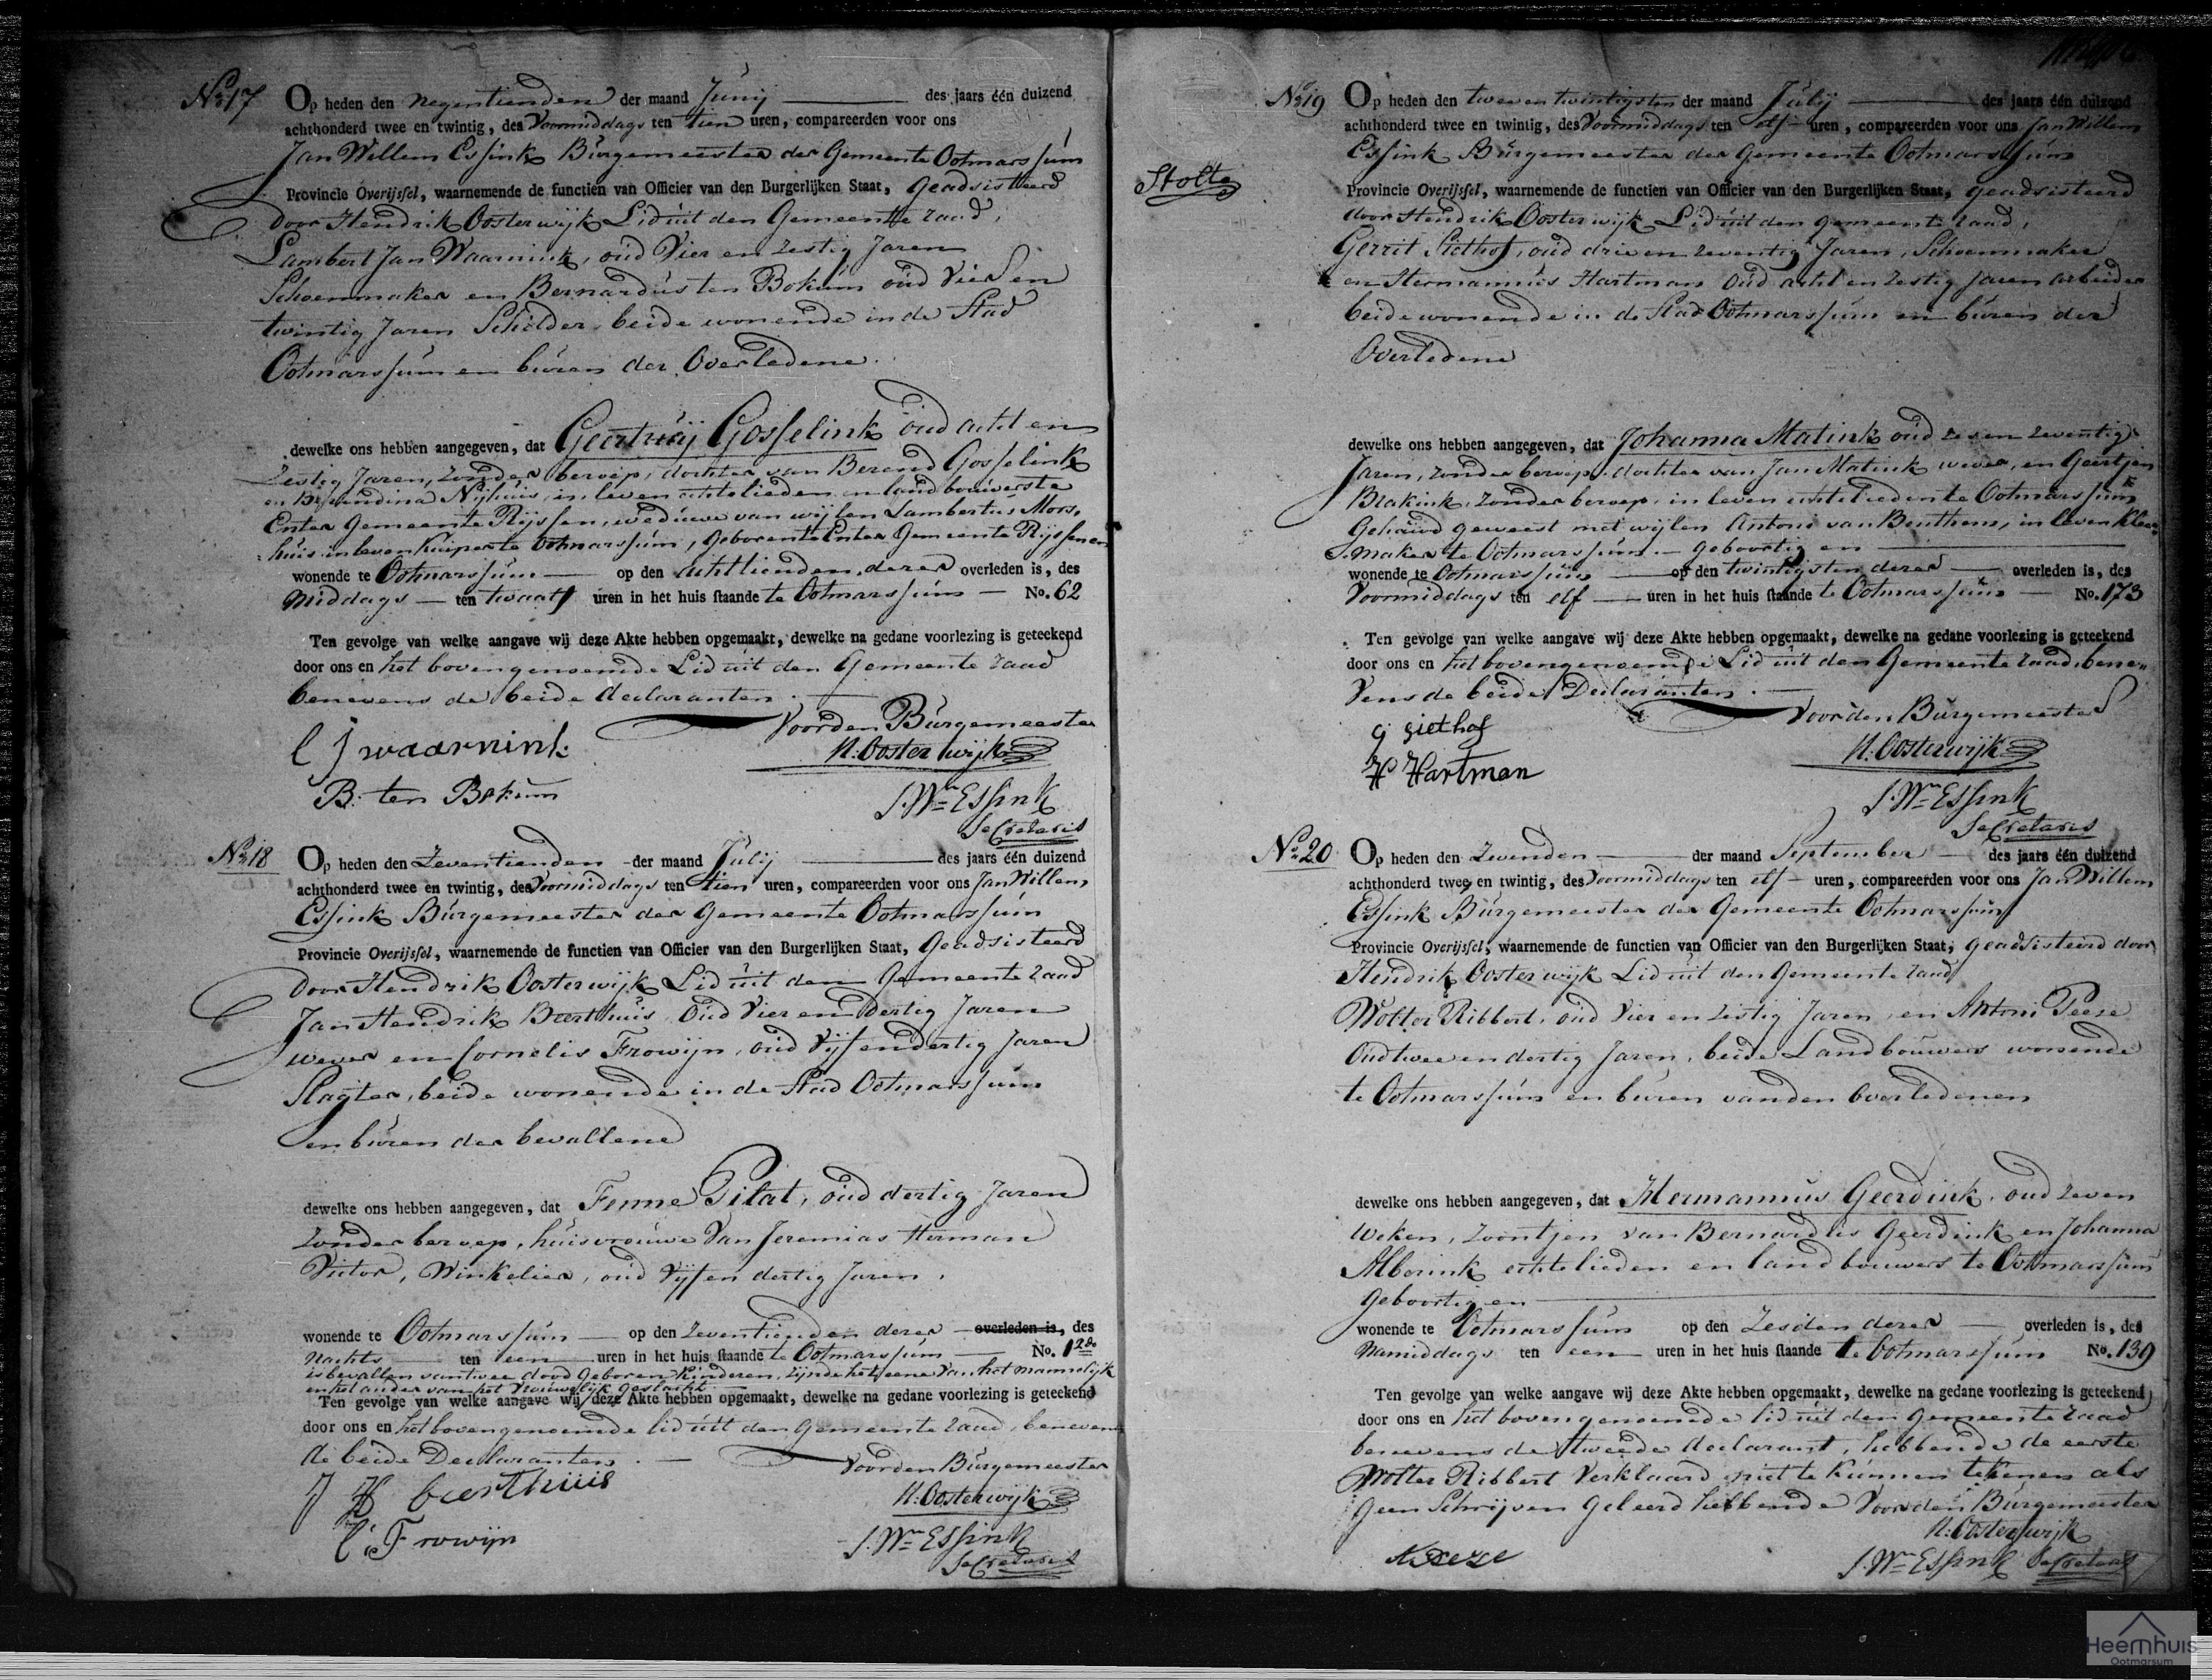 No. 17 Op heden den negentienden der maand Junij des jaars één duizend
achthonderd twee en twintig, des Voormiddags ten tien uren, compareerden voor ons
Jan Willem Essink Burgemeester der Gemeente Ootmarssum
Provincie Overijssel, waarnemende de functien van Officier van den Burgerlijken Staat, geadsisteerd
door Hendrik Oosterwijk Lid uit den Gemeente raad,
Lambert Jan Waarnink, oud Vier en zestig Jaren
Schoenmaker en Bernardus ten Bokum oud Vier en
twintig Jaren Schilder, beide wonende in de Stad
Ootmarssum en buren der Overledene.
dewelke ons hebben aangegeven, dat Geertruij Gosselink oud acht en
Zestig Jaren, zonder beroep, dochter van Berend Gosselink
en Berendina Nijhuis, in leven echtelieden en landbouwers te
Enter Gemeente Rijssen, weduwe van wijlen Lambertus Mors-
huis in leven Kuiper te Ootmarssum, geboren te Enter Gemeente Rijssen en
wonende te Ootmarssum op den achttienden dezer overleden is, des
Middags ten twaalf uren in het huis staande te Ootmarssum No. 62
Ten gevolge van welke aangave wij deze Akte hebben opgemaakt, dewelke na gedane voorlezing is geteekend
door ons en het bovengenoemde Lid uit den Gemeente raad
benevens de beide declaranten.
Voor den Burgemeester
L J waarnink
H: Oosterwijk
B: ten Bokum
J. Wm Essink
Secretaris
No. 18 Op heden den Zeventienden der maand Julij des jaars één duizend
achthonderd twee en twintig, des Voormiddags ten tien uren, compareerden voor ons Jan Willem
Essink Burgemeester der Gemeente Ootmarssum
Provincie Overijssel, waarnemende de functien van Officier van den Burgerlijken Staat, Geadsisteerd
door Hendrik Oosterwijk Lid uit den Gemeente raad
Jan Hendrik Beerthuis Oud Vier en Dertig Jaren
wever en Cornelis Frowijn, oud Vijf en dertig Jaren
Slagter, beide wonende in de Stad Ootmarssum
en buren der bevallene
dewelke ons hebben aangegeven, dat Fenne Pilat, oud dertig Jaren
zonder beroep, huisvrouwe van Jeremias Herman
Victor, Winkelier, oud Vijf en dertig Jaren.
wonende te Ootmarssum op den Zeventienden dezer overleden is, des
Nachts ten een uren in het huis staande te Ootmarssum No. 12do
is bevallen van twee dood Geboren Kinderen, zijnde het eene Van het mannelijk
en het ander van het Vrouwelijk geslacht.
Ten gevolge van welke aangave wij deze Akte hebben opgemaakt, dewelke na gedane voorlezing is geteekend
door ons en het bovengenoemde lid uit den Gemeente raad, benevens
de beide Declaranten.
Voor den Burgemeester
J H beerthuis
H: Oosterwijk
C: Frowijn
J. Wm Essink
Secretaris
Stolte
No. 19 Op heden den twee en twintigsten der maand Julij des jaars één duizend
achthonderd twee en twintig, des Voormiddags ten elf uren, compareerden voor ons Jan Willem
Essink Burgemeester der Gemeente Ootmarssum
Provincie Overijssel, waarnemende de functien van Officier van den Burgerlijken Staat, geadsisteerd
door Hendrik Oosterwijk Lid uit den gemeente raad,
Gerrit Siethof, oud drie en zeventig Jaren, Schoenmaker
en Hermannus Hartman Oud acht en zestig Jaren arbeider
beide wonende in de Stad Ootmarssum en buren der
Overledene
dewelke ons hebben aangegeven, dat Johanna Matink oud zes en zeventig
Jaren, zonder beroep, dochter van Jan Matink wever, en Geertjen
Blakink, zonder beroep, in leven echtelieden te Ootmarssum
Gehuwd geweest met wijlen Antoni van Benthem, in leven Kleer-
maker te Ootmarssum. geboortig en
wonende te Ootmarssum op den twintigsten dezer overleden is, des
Voormiddags ten elf uren in het huis staande te Ootmarssum No. 173
Ten gevolge van welke aangave wij deze Akte hebben opgemaakt, dewelke na gedane voorlezing is geteekend
door ons en het bovengenoemde Lid uit den Gemeente raad, bene-
vens de beide Declaranten.
Voor den Burgemeester
g siethof
H: Oosterwijk
H Hartman
J. Wm Essink
Secretaris
No. 20 Op heden den Zevenden der maand September des jaars één duizend
achthonderd twee en twintig, des Voormiddags ten elf uren, compareerden voor ons Jan Willem
Essink Burgemeester der Gemeente Ootmarssum
Provincie Overijssel, waarnemende de functien van Officier van den Burgerlijken Staat, geadsisteerd door
Hendrik Oosterwijk Lid uit den Gemeente raad
Wolter Ribbert, oud Vier en zestig Jaren, en Antoni Peese
Oud twee en dertig Jaren, beide Landbouwers wonende
te Ootmarssum en buren van den Overledenen
dewelke ons hebben aangegeven, dat Hermannus Geerdink, oud zeven
weken, zoontjen van Bernardus Geerdink en Johanna
Alberink echtelieden en landbouwers te Ootmarssum
geboortig en
wonende te Ootmarssum op den Zesden dezer overleden is, des
Namiddags ten een uren in het huis staande te Ootmarssum No. 139
Ten gevolge van welke aangave wij deze Akte hebben opgemaakt, dewelke na gedane voorlezing is geteekend
door ons en het bovengenoemde lid uit den Gemeente raad
benevens de tweede declarant, hebbende de eerste
Wolter Ribbert Verklaard niet te kunnen tekenen als
geen Schrijven geleerd hebbende Voor den Burgemeester
H: Oosterwijk
J. Wm Essink Secretaris
Heemhuis
Ootmarsum